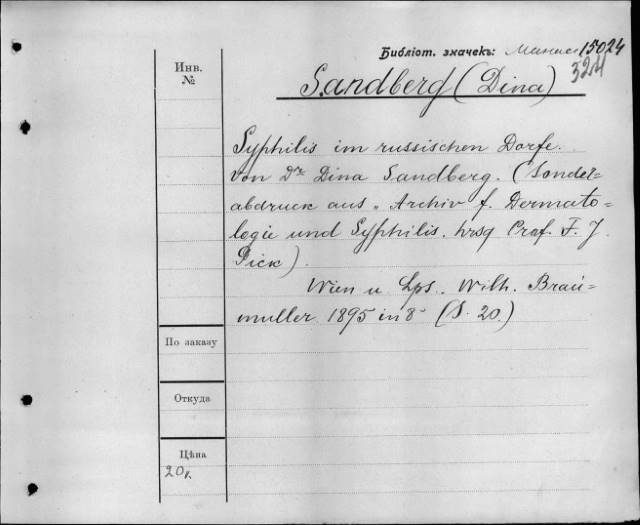 Библіот. значекъ: Манас 15024
324
Инв.
№
Sandberg (Dina)
Syphilis im russischen Dorfe.
Von Dr Dina Sandberg. (Sonder-
abdruck aus „Archiv f. Dermato-
logie und Syphilis. hrsg Prof. F. J.
Pick).
Wien u Lps. Wilh. Brau-
muller 1895 in 8° (S. 20.)
По заказу
Откуда
Цѣна
20к.